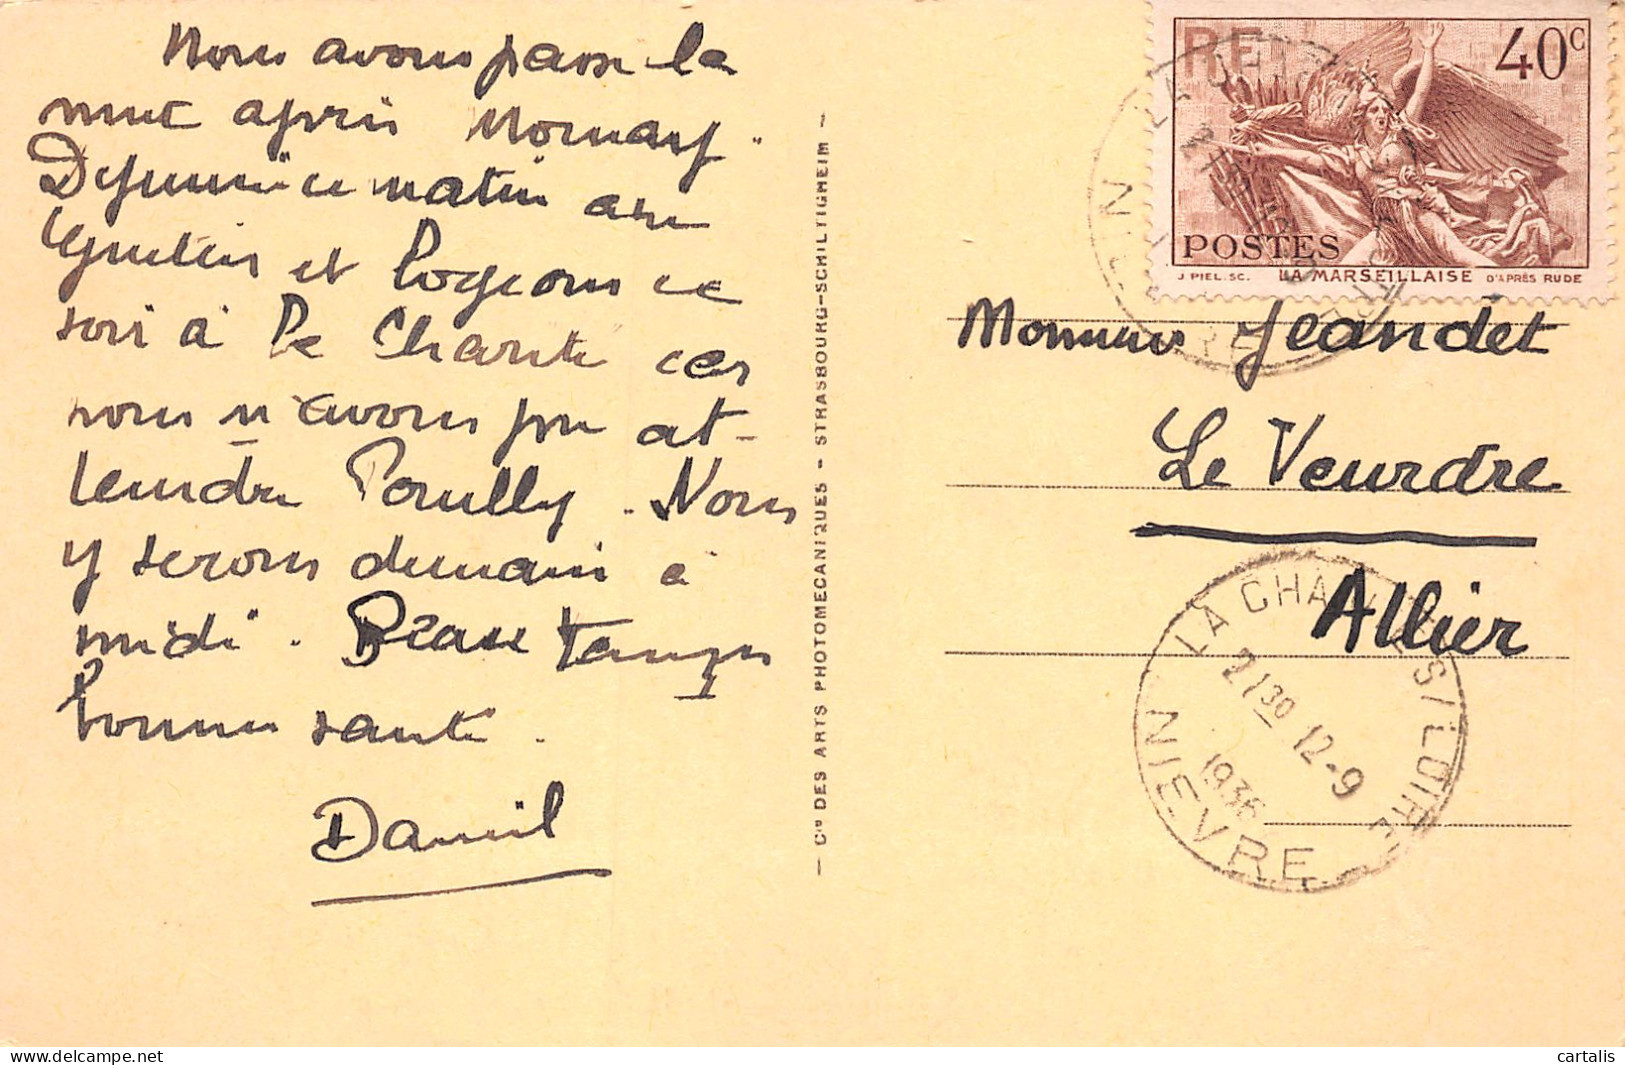 Nous avons passé la
nuit après Mornay.
Déjeuné ce matin aux
et logeons ce
soir à La Charité car
nous n'avons pu at-
teindre Pouilly. Nous
y serons demain à
midi. Beau temps
bonne santé.
Daniel
Cie DES ARTS PHOTOMECANIQUES - STRASBOURG-SCHILTIGHEIM -
RF
40c
POSTES
J. PIEL. SC. LA MARSEILLAISE D'APRÈS RUDE
Monsieur Jeandet
Le Veurdre
Allier
LA CHARITE S/ LOIRE
21 30 12-9
1936
NIEVRE
cartalis